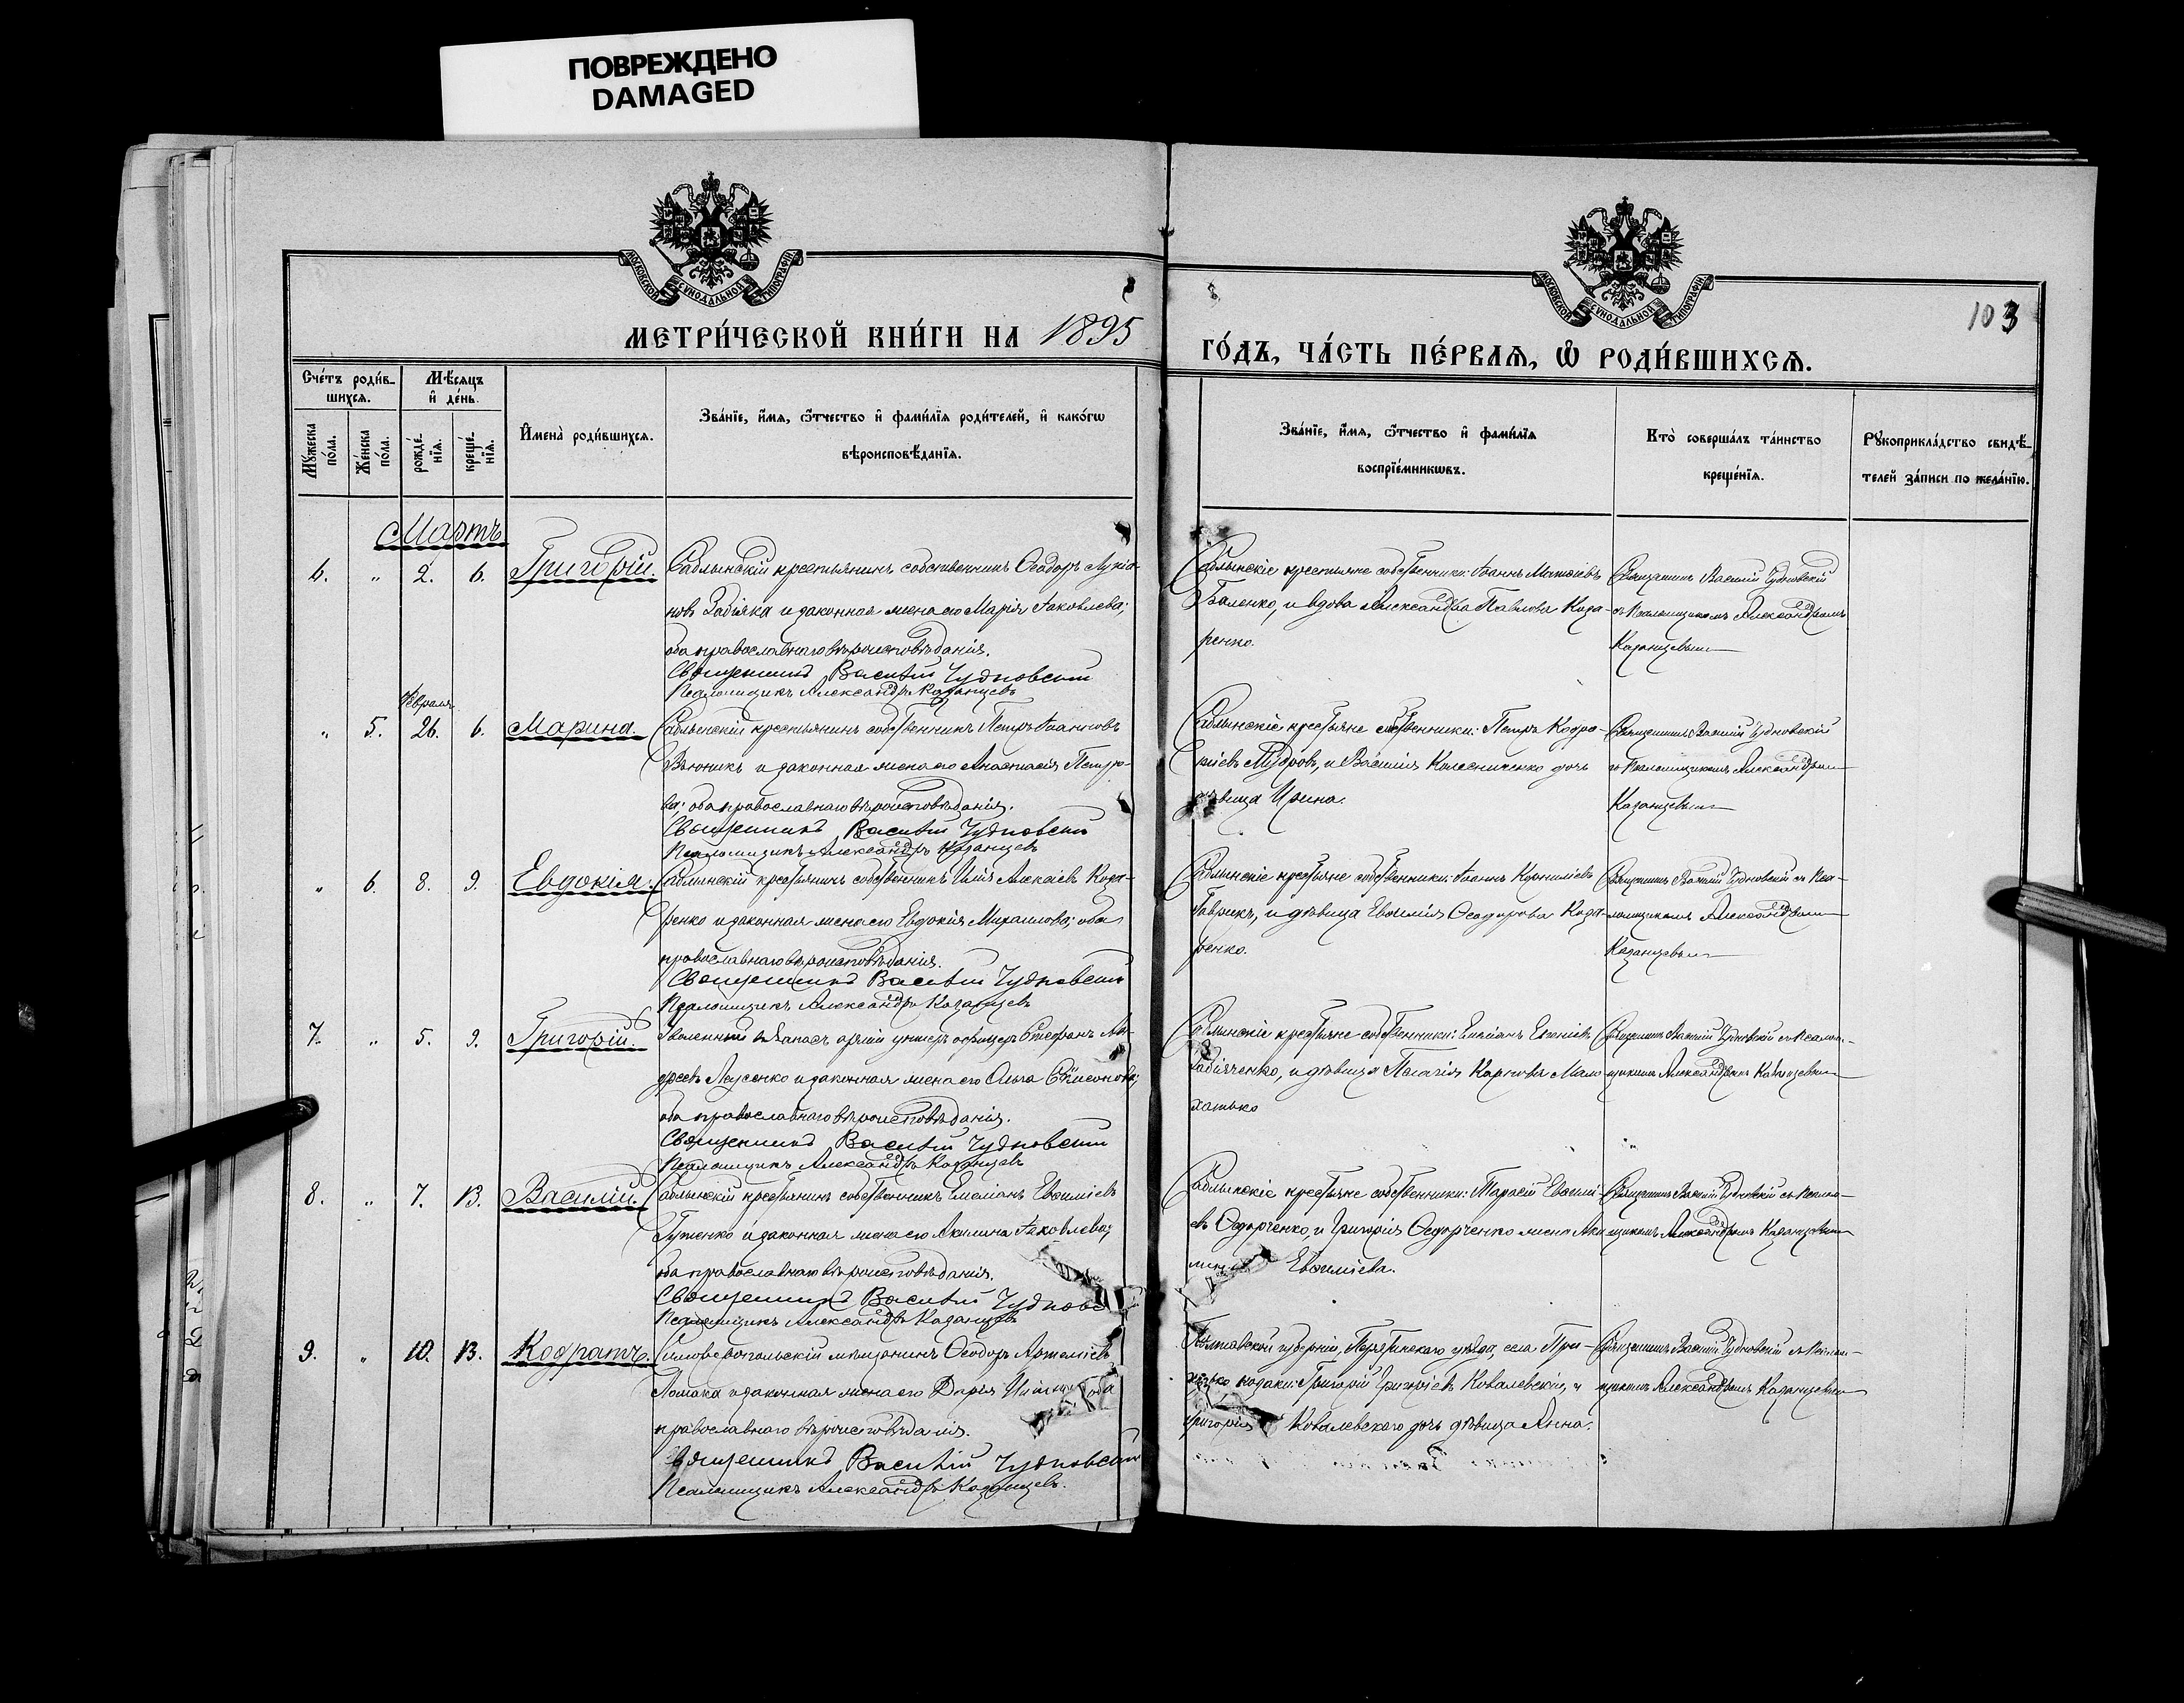 ПОВРЕЖДЕНО
DAMAGED
МОСКОВСКОЙ СѴНОДАЛЬНОЙ ТИПОГРАФІИ
МОСКОВСКОЙ СѴНОДАЛЬНОЙ ТИПОГРАФІИ
103
МЕТРИ́ЧЕСКОЙ КНИ́ГИ НА 1895
ГО́ДЪ, ЧА́СТЬ ПЕ́РВАѦ, Ѽ РОДИ́ВШИХСѦ.
Сче́тъ роди́в-
шихся.
Мѣ́сяцъ
и҆ де́нь.
Мꙋ́жеска по́ла.
Же́нска по́ла.
рожде́-
нїя.
креще́-
нїя.
И҆мена̀ роди́вшихся.
Зва́нїе, и҆́мя, ѻ҆́тчество и҆ фами́лїя роди́телей, и҆ како́гѡ
вѣроисповѣ́данїя.
Зва́нїе, и҆́мя, ѻ҆́тчество и҆ фами́лїя
воспрїе́мникѡвъ.
Кто̀ соверша́лъ та́инство
креще́нїя.
Рꙋкоприкла́дство свидѣ́-
телей за́писи по жела́нїю.
Мартъ
6. „ 2. 6. Григорій. Саблынскій крестьянинъ собственникъ Ѳеодоръ Лукіа-
новъ Забіяка и законная жена его Марія Іаковлева;
оба православнаго вѣроисповѣданія.
Священникъ Василій Чудновскій
Псаломщикъ Александръ Казанцевъ
Саблынскіе крестьяне собственники: Іоаннъ Матѳіевъ
Баленко, и вдова Александра Павлова Коза-
ренко.
Священникъ Василій Чудновскій
съ Псаломщикомъ Александромъ
Казанцевымъ
Февраля
„ 5. 26. 6. Марина. Саблынскій крестьянинъ собственникъ Петръ Іоанновъ
Вьюникъ и законная жена его Анастасія Петро-
ва; оба православнаго вѣроисповѣданія.
Священникъ Василій Чудновскій
Псаломщикъ Александръ Казанцевъ
Саблынскіе крестьяне собственники: Петръ Кодра-
тіевъ Мудровъ, и Василія Колесниченко дочь
дѣвица Ирина.
Священникъ Василій Чудновскій
съ Псаломщикомъ Александромъ
Казанцевымъ
„ 6. 8. 9. Евдокія. Саблынскій крестьянинъ собственникъ Илія Алексіевъ Коза-
ренко и законная жена его Евдокія Михаилова; оба
православнаго вѣроисповѣданія.
Священникъ Василій Чудновскій
Псаломщикъ Александръ Казанцевъ
Саблынскіе крестьяне собственники: Іоаннъ Корниліевъ
Гаврикъ, и дѣвица Евѳимія Ѳеодорова Коза-
ренко.
Священникъ Василій Чудновскій съ Пса-
ломщикомъ Александромъ
Казанцевымъ
7. „ 5. 9. Григорій. Уволенный въ запасъ арміи унтеръ офицеръ Стефанъ Ан-
дреевъ Лысенко и законная жена его Ольга Симеонова;
оба православнаго вѣроисповѣданія.
Священникъ Василій Чудновскій
Псаломщикъ Александръ Казанцевъ
Саблынскіе крестьяне собственники: Емиліанъ
Забіяченко, и дѣвица Пелагія Карпова Мало-
хатько
Священникъ Василій Чудновскій съ Псалом-
щикомъ Александромъ Казанцевымъ
8. „ 7. 13. Василій. Саблынскій крестьянинъ собственникъ Емеліанъ Евѳиміевъ
Гутенко и законная жена его Акилина Іаковлева;
оба православнаго вѣроисповѣданія.
Священникъ Василій Чудновскій
Псаломщикъ Александръ Казанцевъ
Саблынскіе крестьяне собственники: Тарасій Евѳимі-
евъ Ѳедорченко, и Григорія Ѳедорченко жена Аки-
лина Евѳиміева.
Священникъ Василій Чудновскій съ Псалом-
щикомъ Александромъ Казанцевымъ
9. „ 10. 13. Кодратъ. Симферопольскій мѣщанинъ Ѳеодоръ Артеміевъ
Ломака и законная жена его Дарія оба
православнаго вѣроисповѣданія.
Священникъ Василій Чудновскій
Псаломщикъ Александръ Казанцевъ.
Полтавской губерніи, Пирятинскаго уѣзда, села При-
хотько козаки: Григорій Григоріевъ Ковалевскій, и
Григорія Ковалевскаго дочь дѣвица Анна.
Священникъ Василій Чудновскій съ Псалом-
щикомъ Александромъ Казанцевымъ